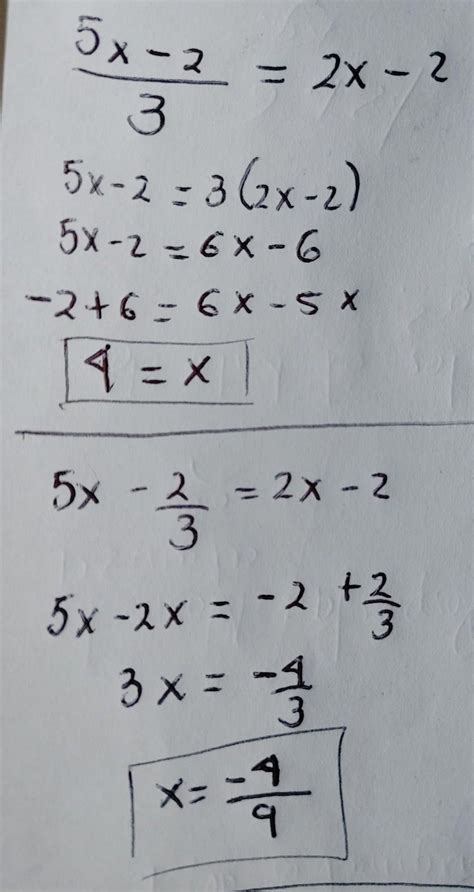 (5x - 2)/3 = 2x - 2
5x - 2 = 3(2x - 2)
5x - 2 = 6x - 6
-2 + 6 = 6x - 5x
4 = x
5x - 2/3 = 2x - 2
5x - 2x = -2 + 2/3
3x = -4/3
x = -4/9